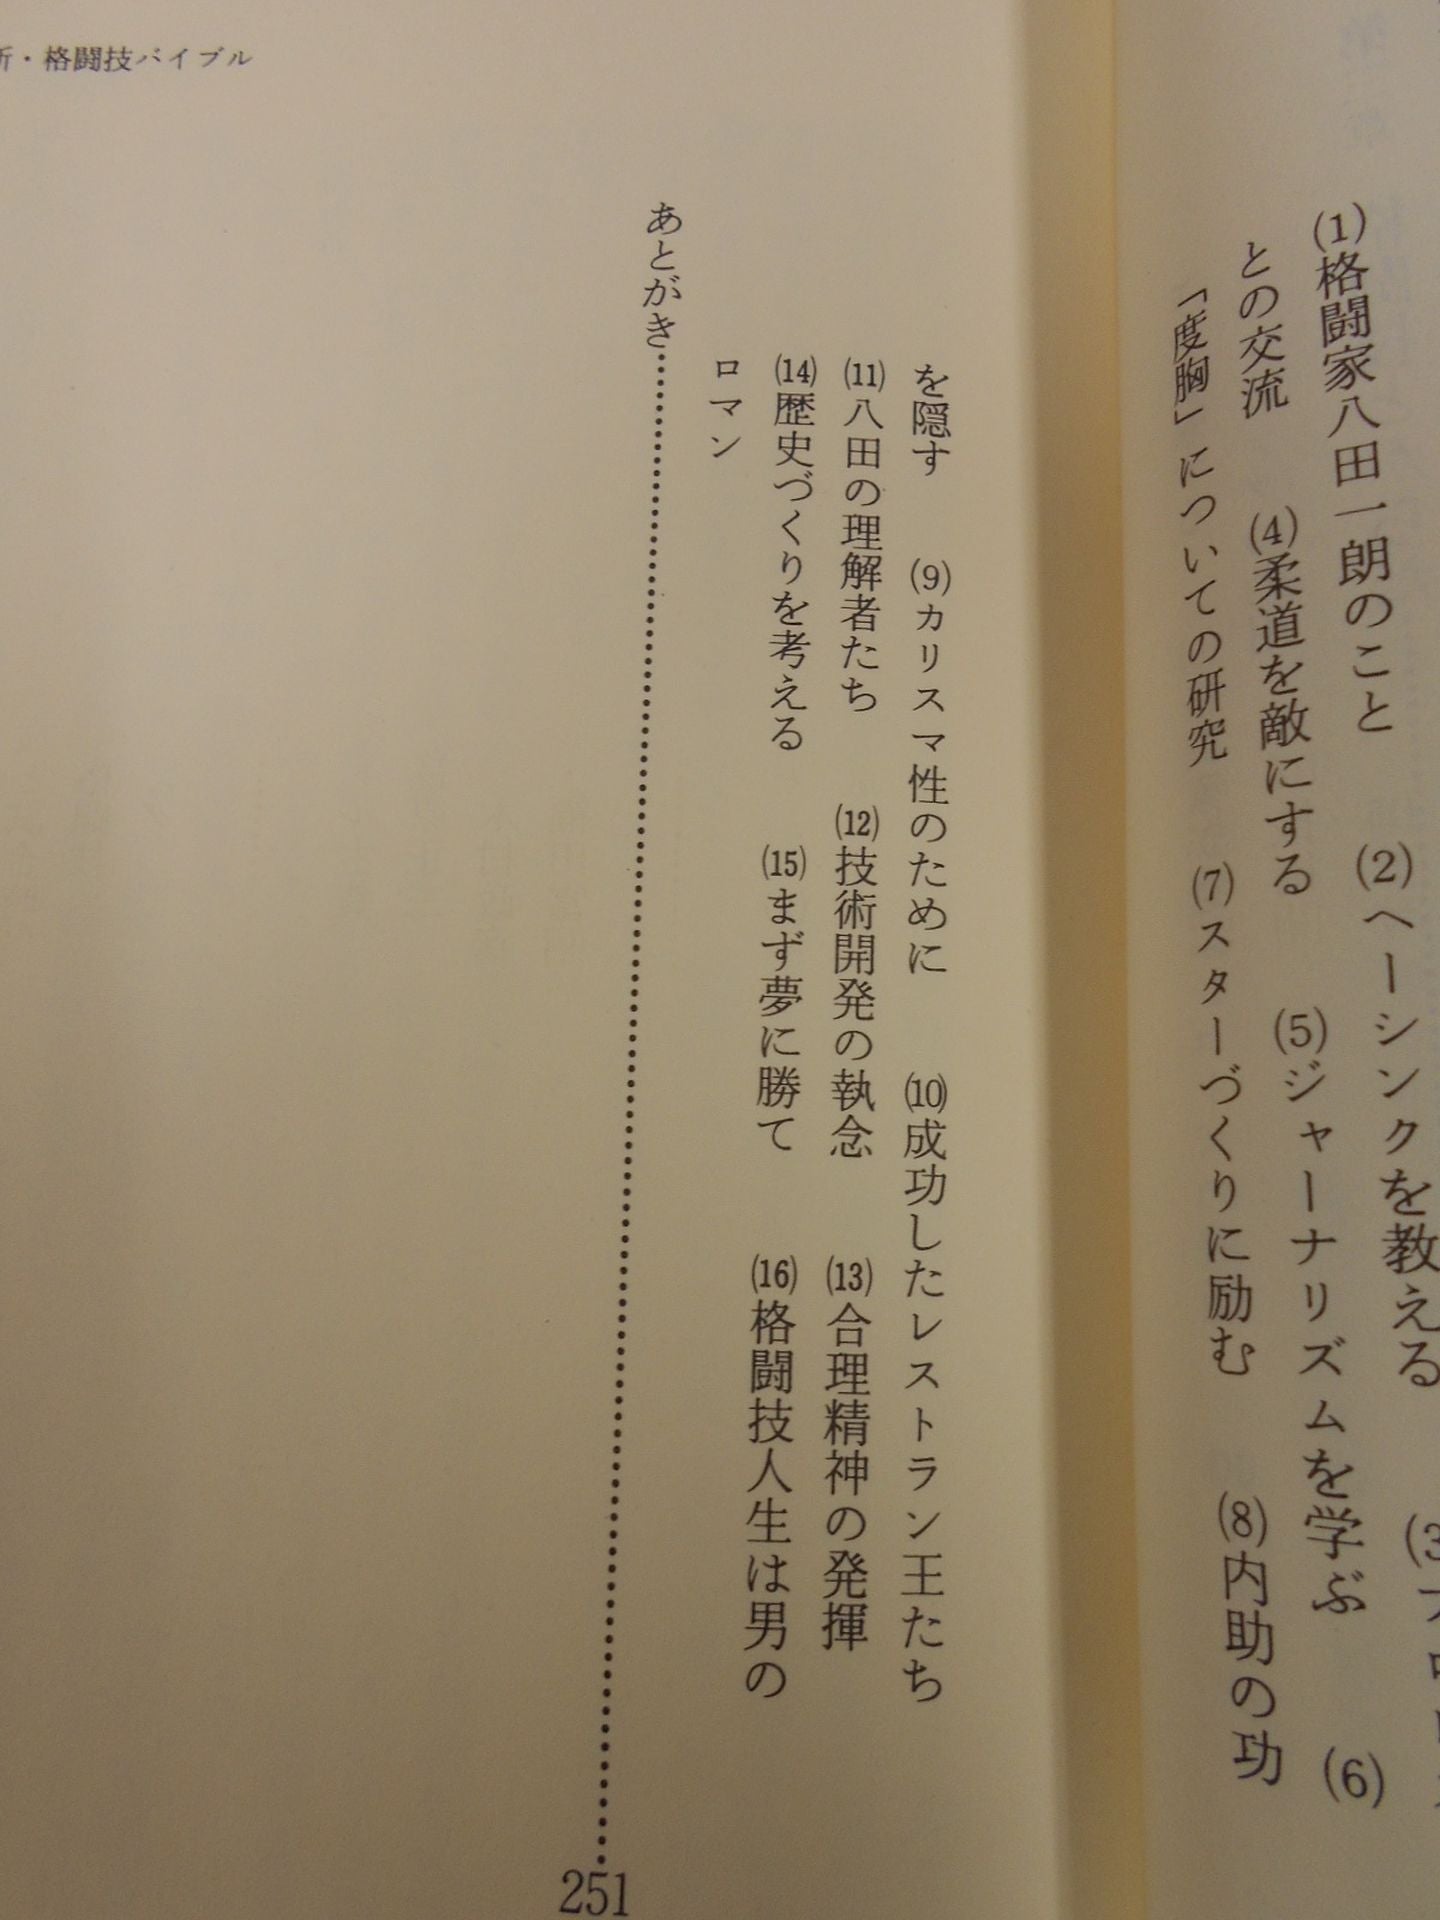 (1)格闘家八田一朗のこと　(2)ヘーシンクを教える　(3)プロ
との交流　(4)柔道を敵にする　(5)ジャーナリズムを学ぶ　(6)
「度胸」についての研究　(7)スターづくりに励む　(8)内助の功
を隠す　(9)カリスマ性のために　(10)成功したレストラン王たち
(11)八田の理解者たち　(12)技術開発の執念　(13)合理精神の発揮
(14)歴史づくりを考える　(15)まず夢に勝て　(16)格闘技人生は男の
ロマン
あとがき……251
・格闘技バイブル